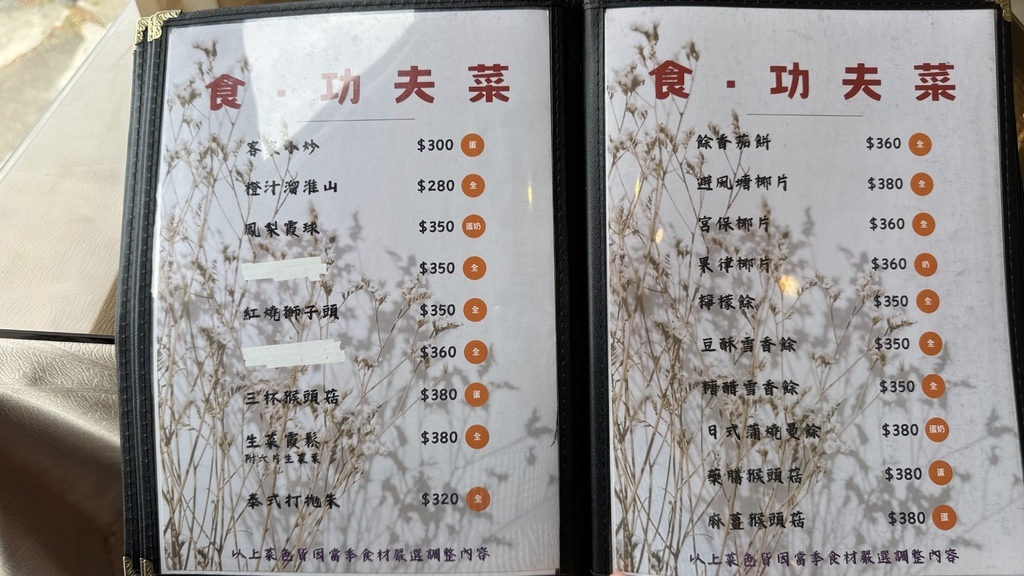 食・功夫菜
客家小炒 $300 蛋
橙汁溜淮山 $280 全
鳳梨霞球 $350 蛋奶
$350 全
紅燒獅子頭 $350 全
$360 全
三杯猴頭菇 $380 蛋
生菜霞鬆 $380 全
附六片生菜葉
泰式打拋朱 $320 全
以上菜色皆因當季食材嚴選調整內容
食・功夫菜
餘香茄餅 $360 全
避風塘椰片 $380 全
宮保椰片 $360 全
果律椰片 $360 奶
檸檬餘 $350 全
豆酥雪香餘 $350 全
糖醋雪香餘 $350 全
日式蒲燒曼餘 $380 蛋奶
藥膳猴頭菇 $380 蛋
麻薑猴頭菇 $380 蛋
以上菜色皆因當季食材嚴選調整內容